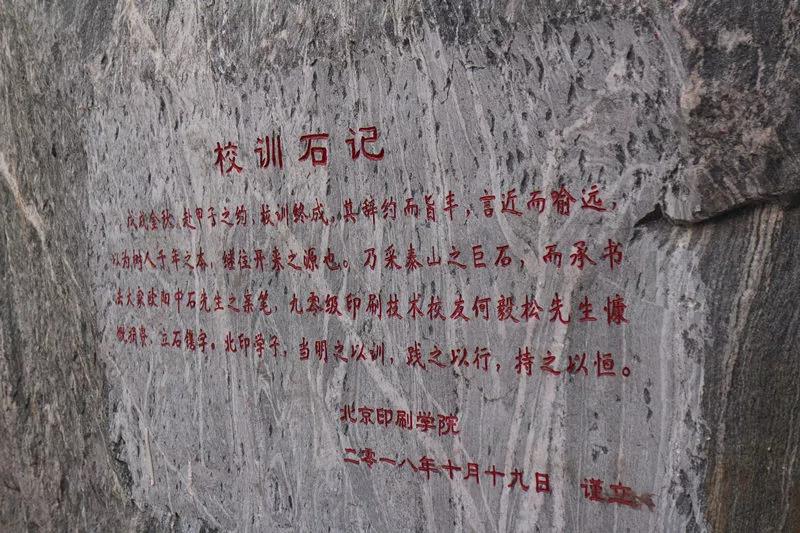 校训石记
戊戌金秋，赴甲子之约，校训终成。其辞约而旨丰，言近而喻远，
以为树人千年之本，继往开来之源也。乃采泰山之巨石，而承书
法大家欧阳中石先生之亲笔，九零级印刷技术校友何毅松先生慷
慨捐资，立石镌字。北印学子，当明之以训，践之以行，持之以恒。
北京印刷学院
二零一八年十月十九日 谨立